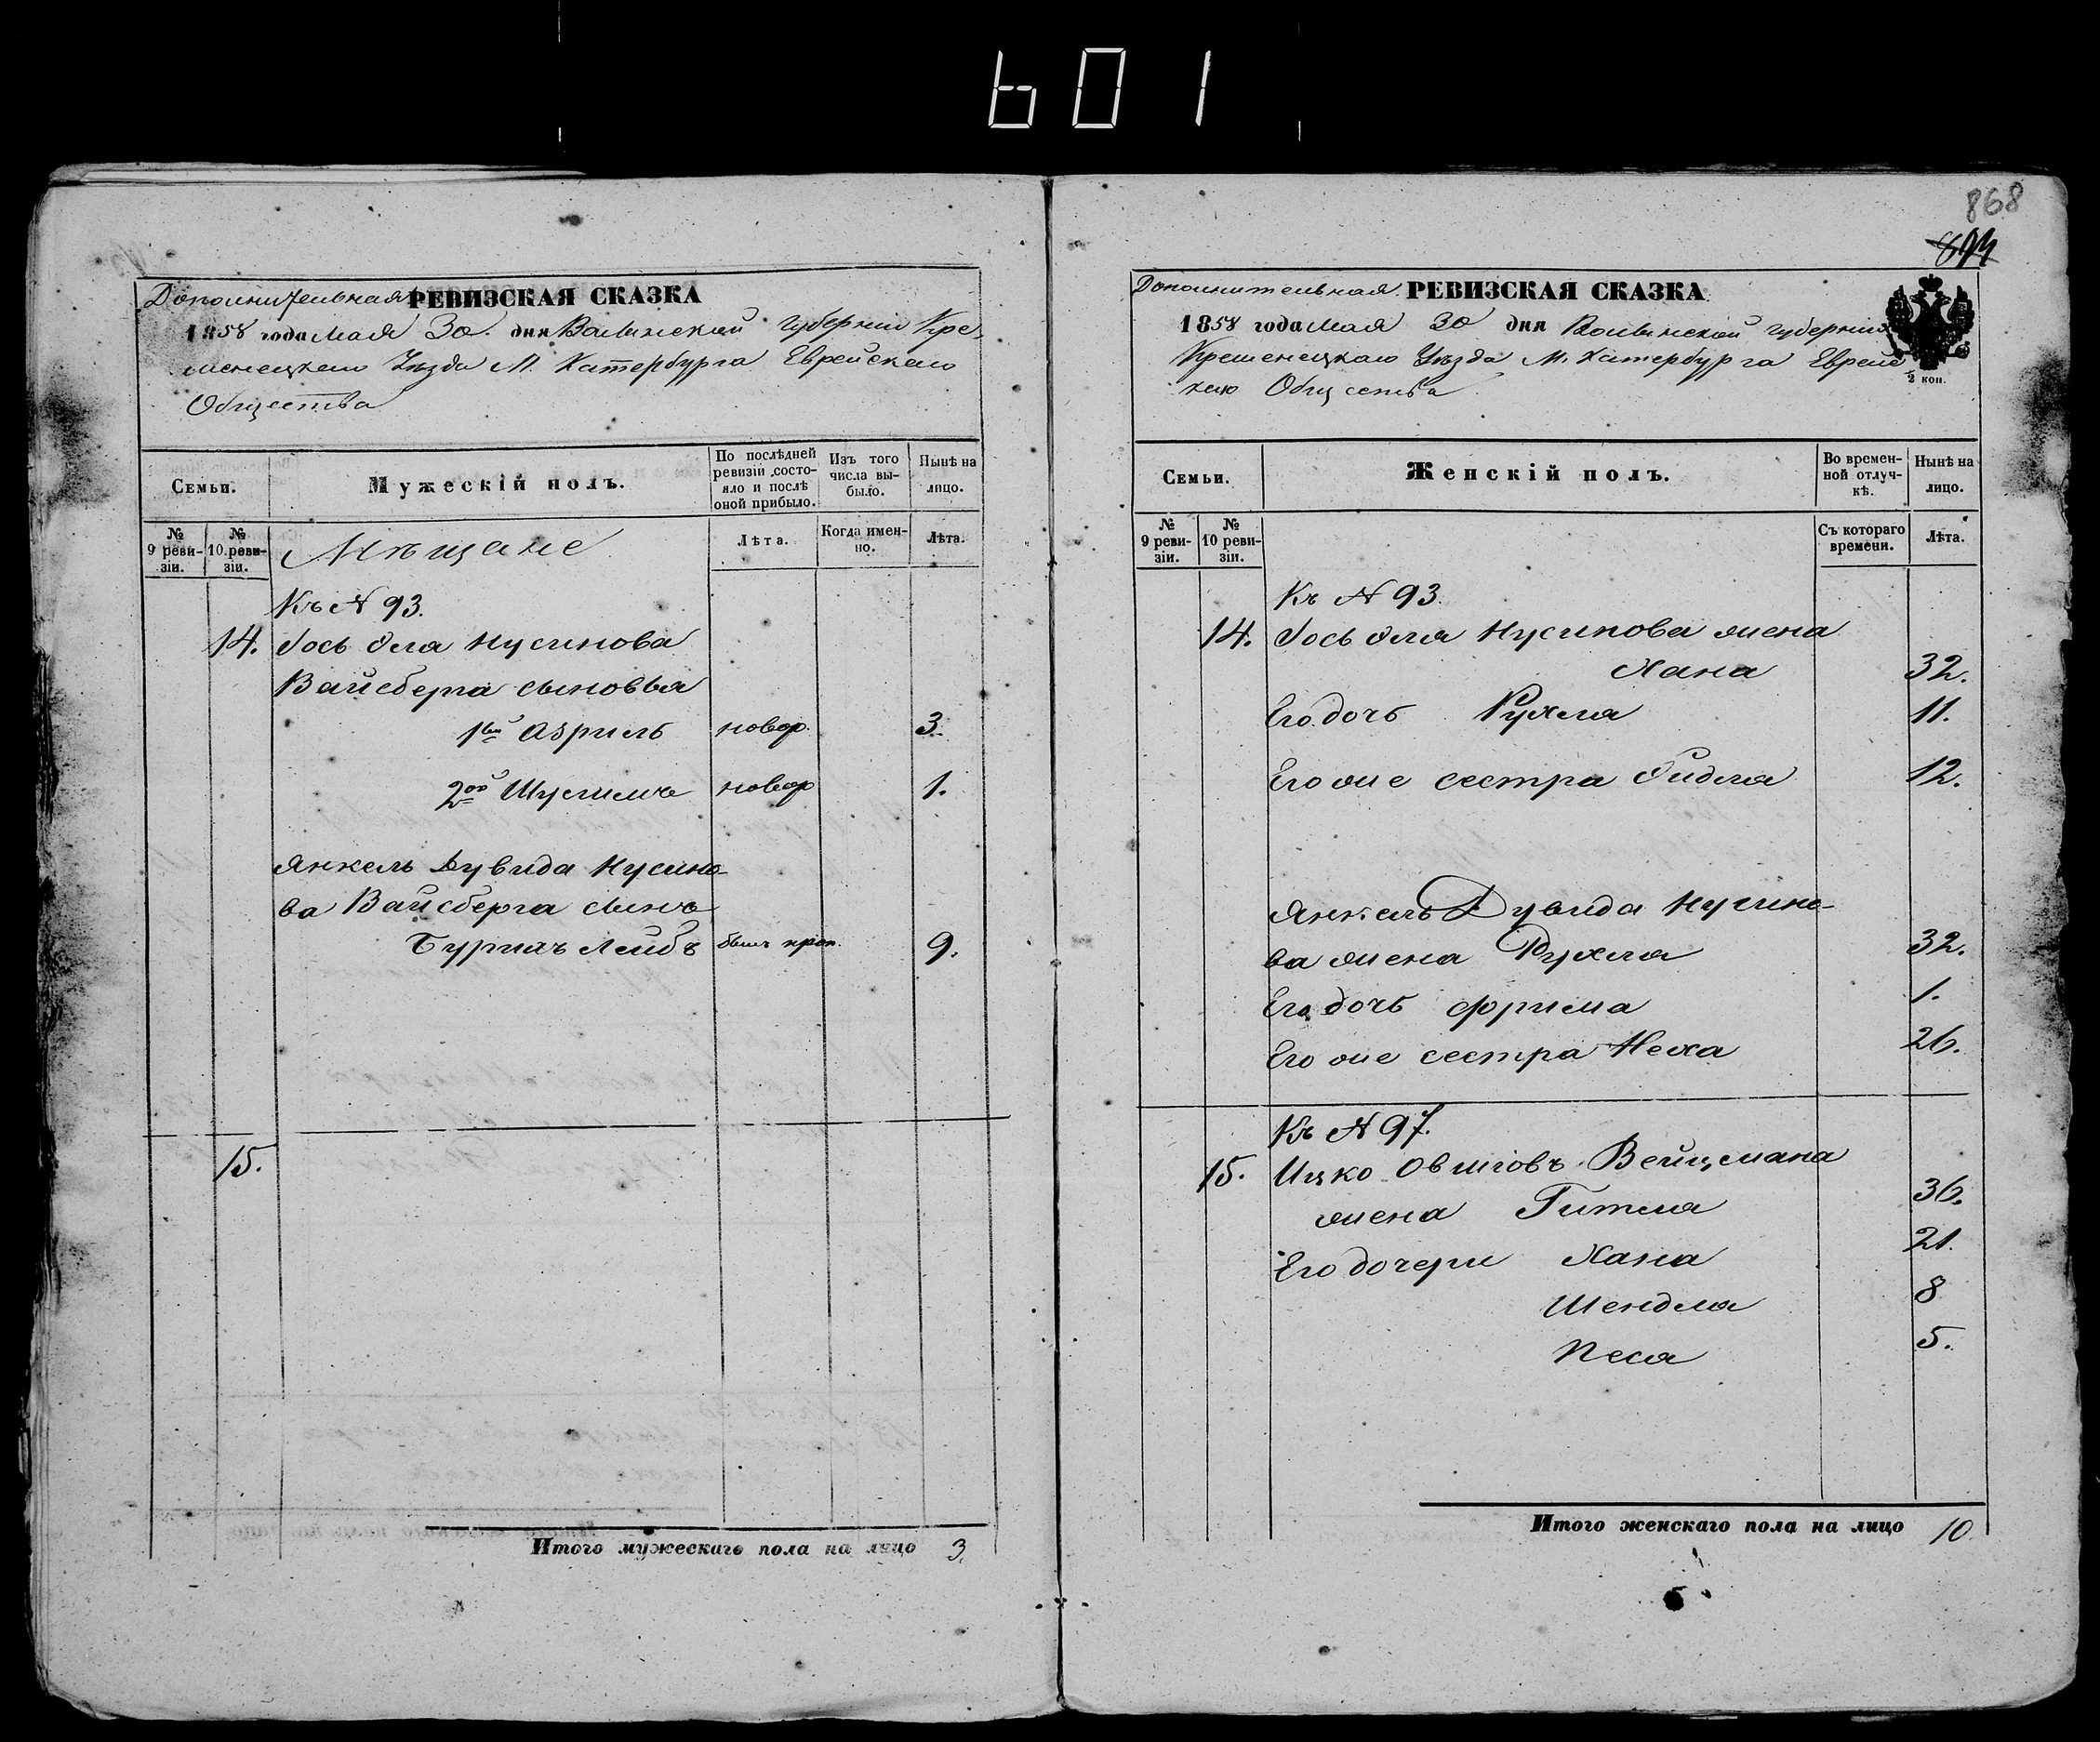 601
868
Дополнительная РЕВИЗСКАЯ СКАЗКА
1858 года Мая 30 дня Волынской губернии Кре-
менецкаго Уѣзда М. Катербурга Еврейскаго
Общества
Семьи.
Мужескій полъ.
По послѣдней ревизіи состо-
яло и послѣ оной прибыло.
Изъ того числа вы-
было.
Нынѣ на лицо.
№ 9 реви-
зіи.
№ 10 реви-
зіи.
Мѣщане
Лѣта.
Когда имен-
но.
Лѣта.
Къ N 93.
14. Іось Нусинова
Вайсберга сыновья
1ый Азриль новор. 3.
2ой новор 1.
Янкель Дувида Нусино-
ва Вайсберга сынъ
Лейбъ былъ проп. 9.
15.
Итого мужескаго пола на лицо 3.
Дополнительная РЕВИЗСКАЯ СКАЗКА
1858 года Мая 30 дня Волынской губернии
Кременецкаго Уѣзда М. Катербурга Еврейс
каго Общества
2 коп.
Семьи.
Женскій полъ.
Во времен-
ной отлуч-
кѣ.
Нынѣ на лицо.
№ 9 реви-
зіи.
№ 10 реви-
зіи.
Съ котораго времени.
Лѣта.
Къ N 93.
14. Іось Нусинова жена
Хана 32.
Его дочь Рухля 11.
Его же сестра 12.
Янкель Дувида Нусино-
ва жена Рухля 32.
Его дочь Фрима 1.
Его же сестра Неха 26.
Къ N 97.
15. Ицко Овшіовъ Вейцмана
жена Гитля 36.
Его дочери Хана 21.
Шендля 8
Песя 5.
Итого женскаго пола на лицо 10.